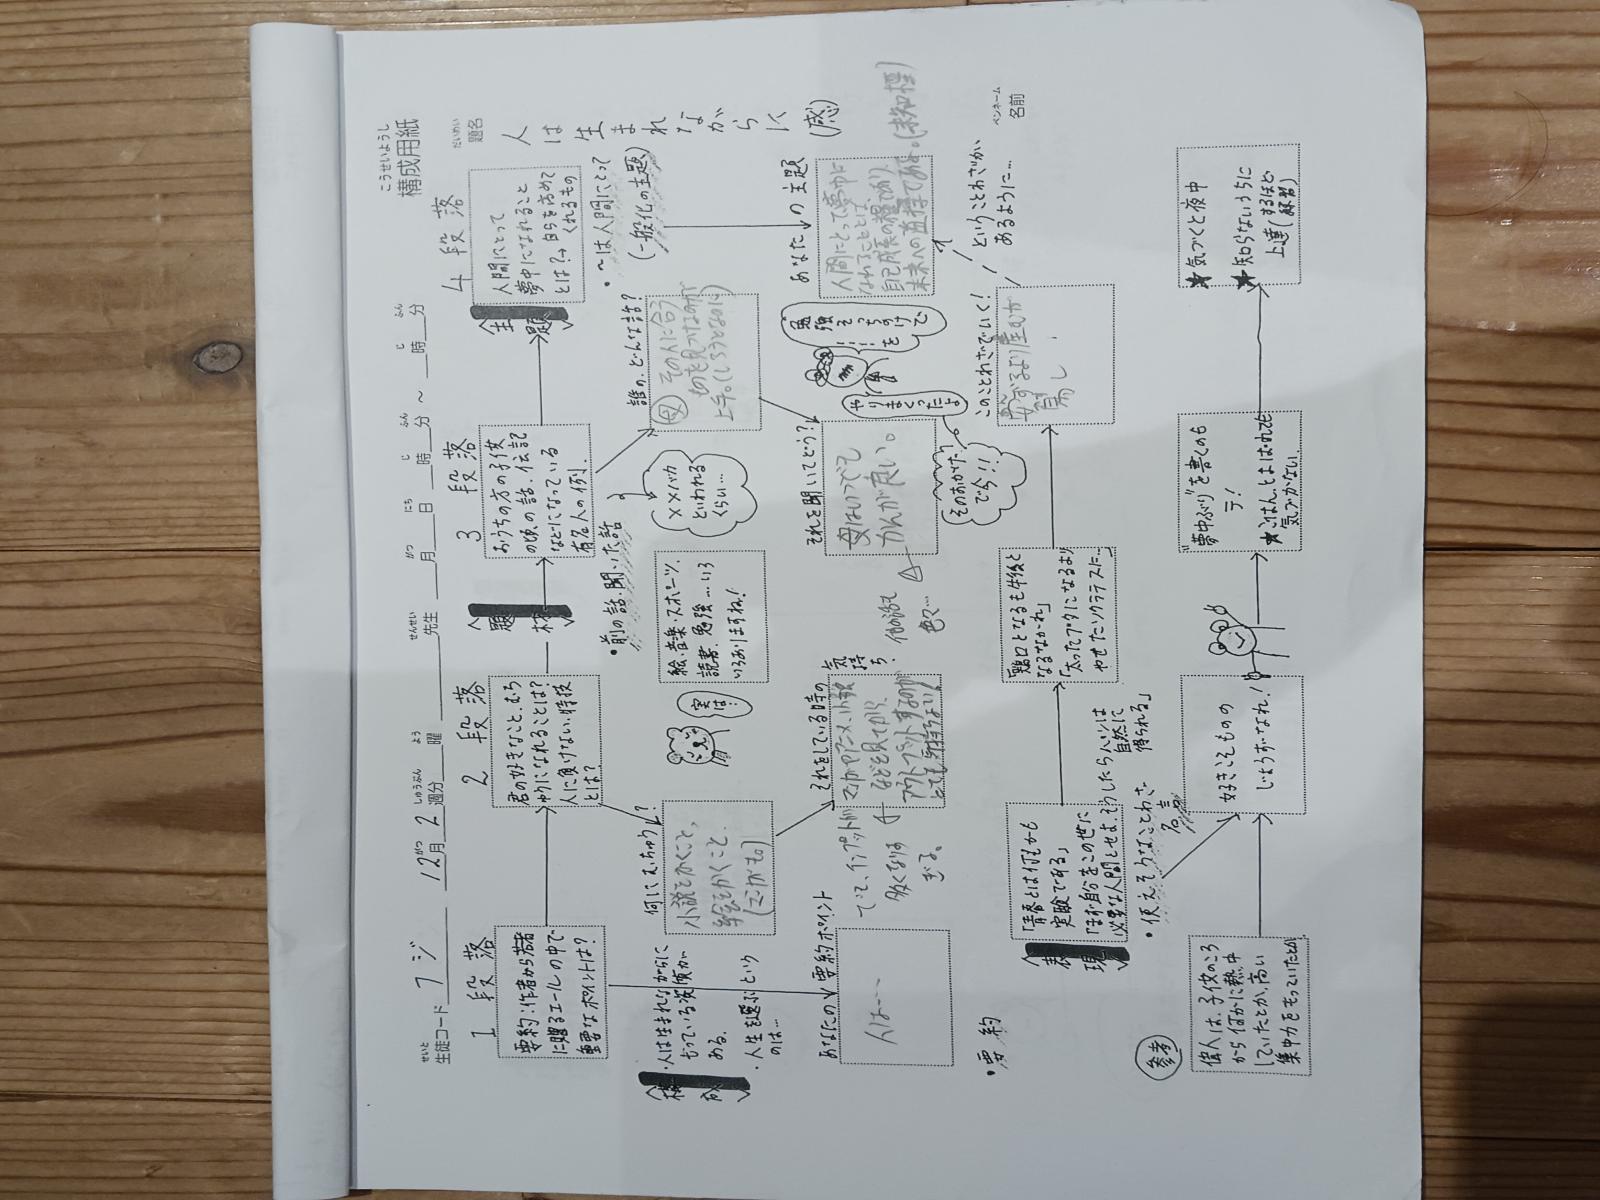 こうせいようし
構成用紙
せいと
生徒コード フジ
12月 2週分
がつ しゅうぶん
よう
曜
せんせい
先生
がつ にち
月 日
じ ふん
時 分 ～
じ ふん
時 分
だいめい
題名
人は生まれながらに
(感)
ペンネーム
名前
1段落
要約:作者から若者
に贈るエールの中で
重要なポイントは?
2段落
君の好きなこと、むち
ゅうになれることは?
人に負けない特技
とは?
〈題材〉
3段落
おうちの方の子供
の頃の話、伝記
などになっている
有名人の例。
〈主題〉
4段落
人間にとって
夢中になれること
とは?→自らを高めて
くれるもの
〈構成〉
・人は生まれながらに
もっている資質が
ある。
・人生を選ぶという
のは…
あなたの要約ポイント
人は…
・要約
何にむちゅう?
小説をかくこと、
絵をかくこと、
(マンガも。)
実は!
絵・音楽・スポーツ、
読書、勉強…いろ
いろありますね!
それをしている時の
気持ち。
マンガやアニメ、小説
などを見てから、
アウトプットするのが
とても気持ちよい!
インプットが
多くなり
すぎる。
・前の話・聞いた話
××バカ
といわれる
くらい…
誰の、どんな話?
母
その人に合う
物を見つけるのが
上手。
それを聞いてどう?
母はいつでも
かんが良い。
他の論で
色々…
やりまくったよ
勉強
そっちのけで
そのおかげ
で今!!
・～は人間にとって
(一般化の主題)
あなたの主題
人間にとって夢中に
なれることとは、
自己成長の糧であり、
未来への道標である。
〈表現〉
「青春とは何もかも
実験である」
「まず自分をこの世に
必要な人間とせよ。そうしたらパンは
自然に
得られる」
「鶏口となるも牛後と
なるなかれ」
「太ったブタになるより
やせたソクラテスに…
このことわざでいく!
案ずるより産むが
易し
ということわざが
あるように…
・使えそうなことわざ
名言
参考
偉人は、子供のころ
から何かに熱中
していたとか、高い
集中力をもっていたとか
好きこそものの
じょうずなれ!
"夢中ぶり"を書くのも
テ!
★ごはんとよばれても
気づかない
★気づくと夜中
★知らないうちに
上達(するほど
練習)